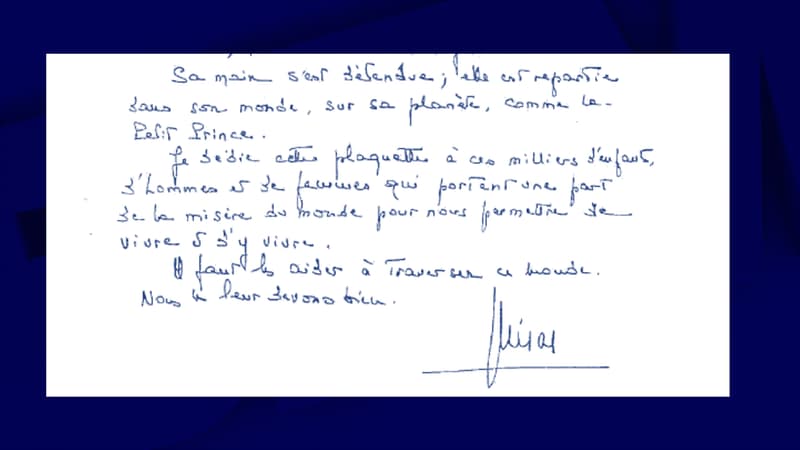 Sa main s'est détendue ; elle est repartie
dans son monde, sur sa planète, comme le
Petit Prince.
Je dédie cette plaquette à ces milliers d'enfants,
d'hommes et de femmes qui portent une part
de la misère du monde pour nous permettre de
vivre et d'y vivre.
Il faut les aider à traverser ce monde.
Nous le leur devons bien.